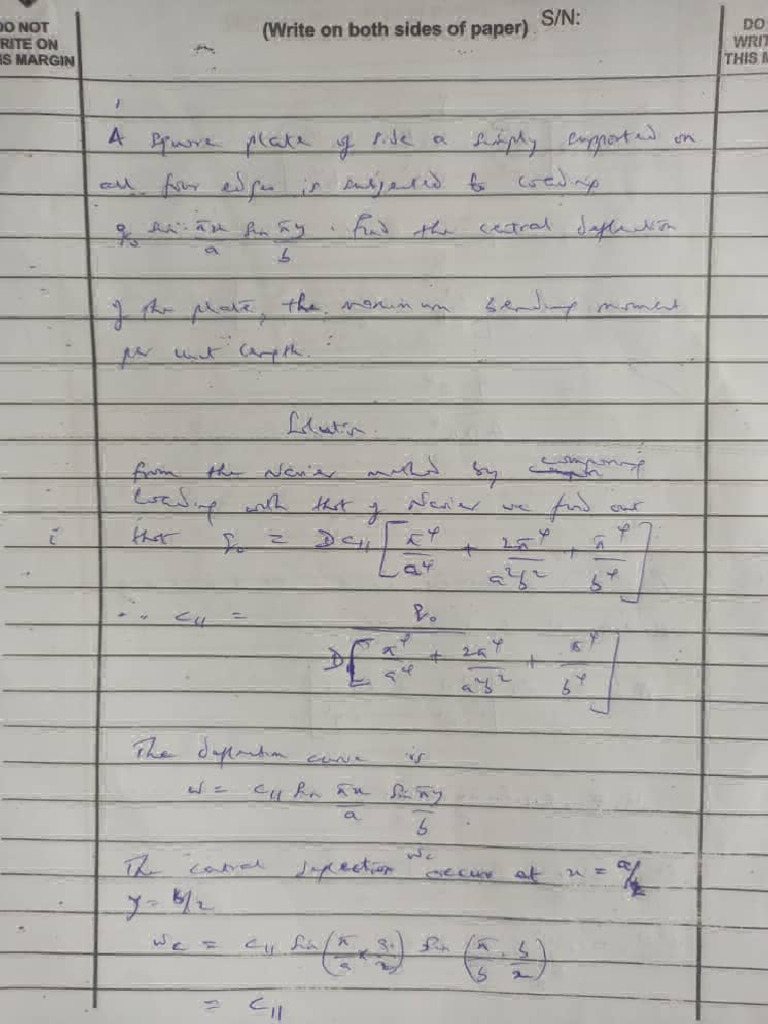 DO NOT
WRITE ON
THIS MARGIN
(Write on both sides of paper) S/N:
DO
WRIT
THIS M
1
A square plate of side a simply supported on
all four edges is subjected to loading
q₀ sin πx/a sin πy/b . Find the central deflection
of the plate, the maximum bending moment
per unit length.
Solution
from the Navier method by comparing
loading with that of Navier we find out
i that q₀ = D C₁₁ [π⁴/a⁴ + 2π⁴/a²b² + π⁴/b⁴]
∴ C₁₁ = q₀ / D[π⁴/a⁴ + 2π⁴/a²b² + π⁴/b⁴]
The deflection curve is
w = C₁₁ sin πx/a sin πy/b
The central deflection wc occurs at x = a/2
y = b/2
wc = C₁₁ sin(π/a × a/2) sin(π/b . b/2)
= C₁₁